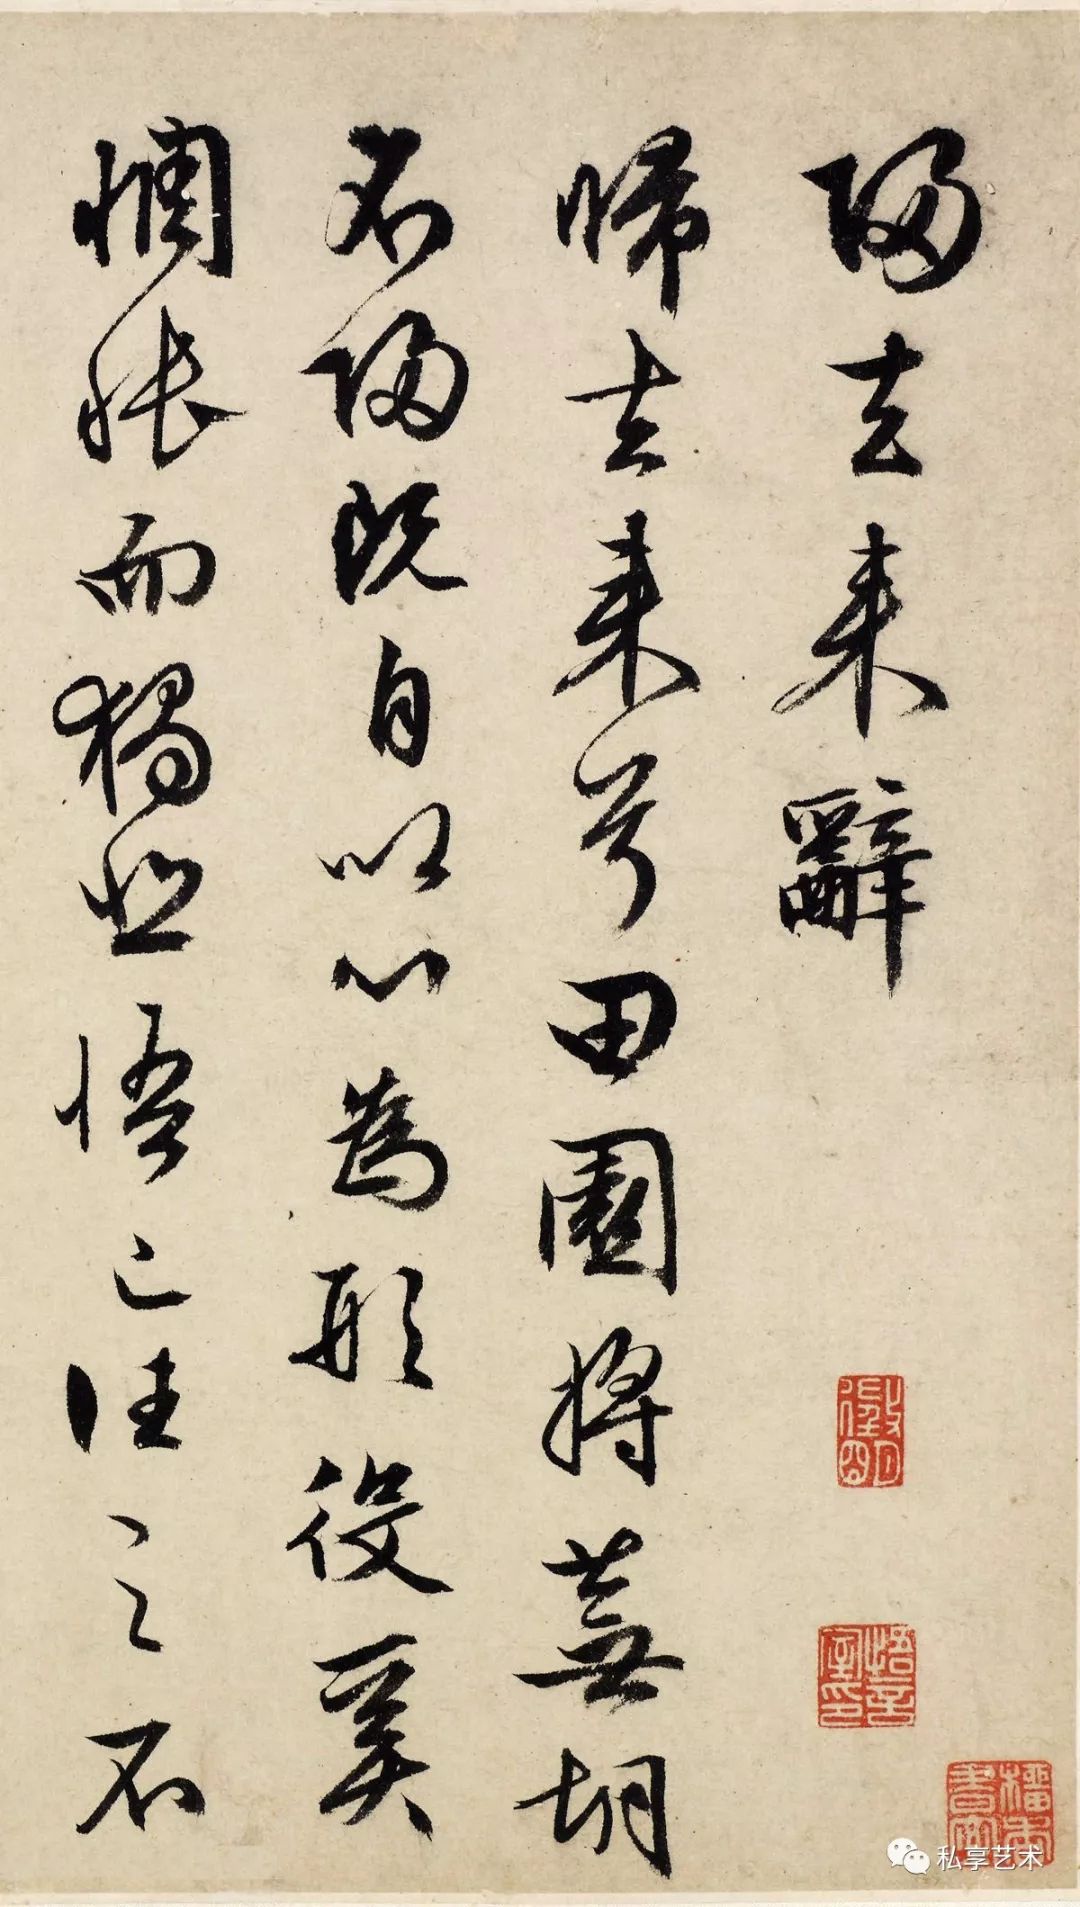 歸去来辭
歸去来兮田園將蕪胡
不歸既自以心為形役奚
惆悵而獨悲悟已往之不
徵明
悟言室印
私享艺术